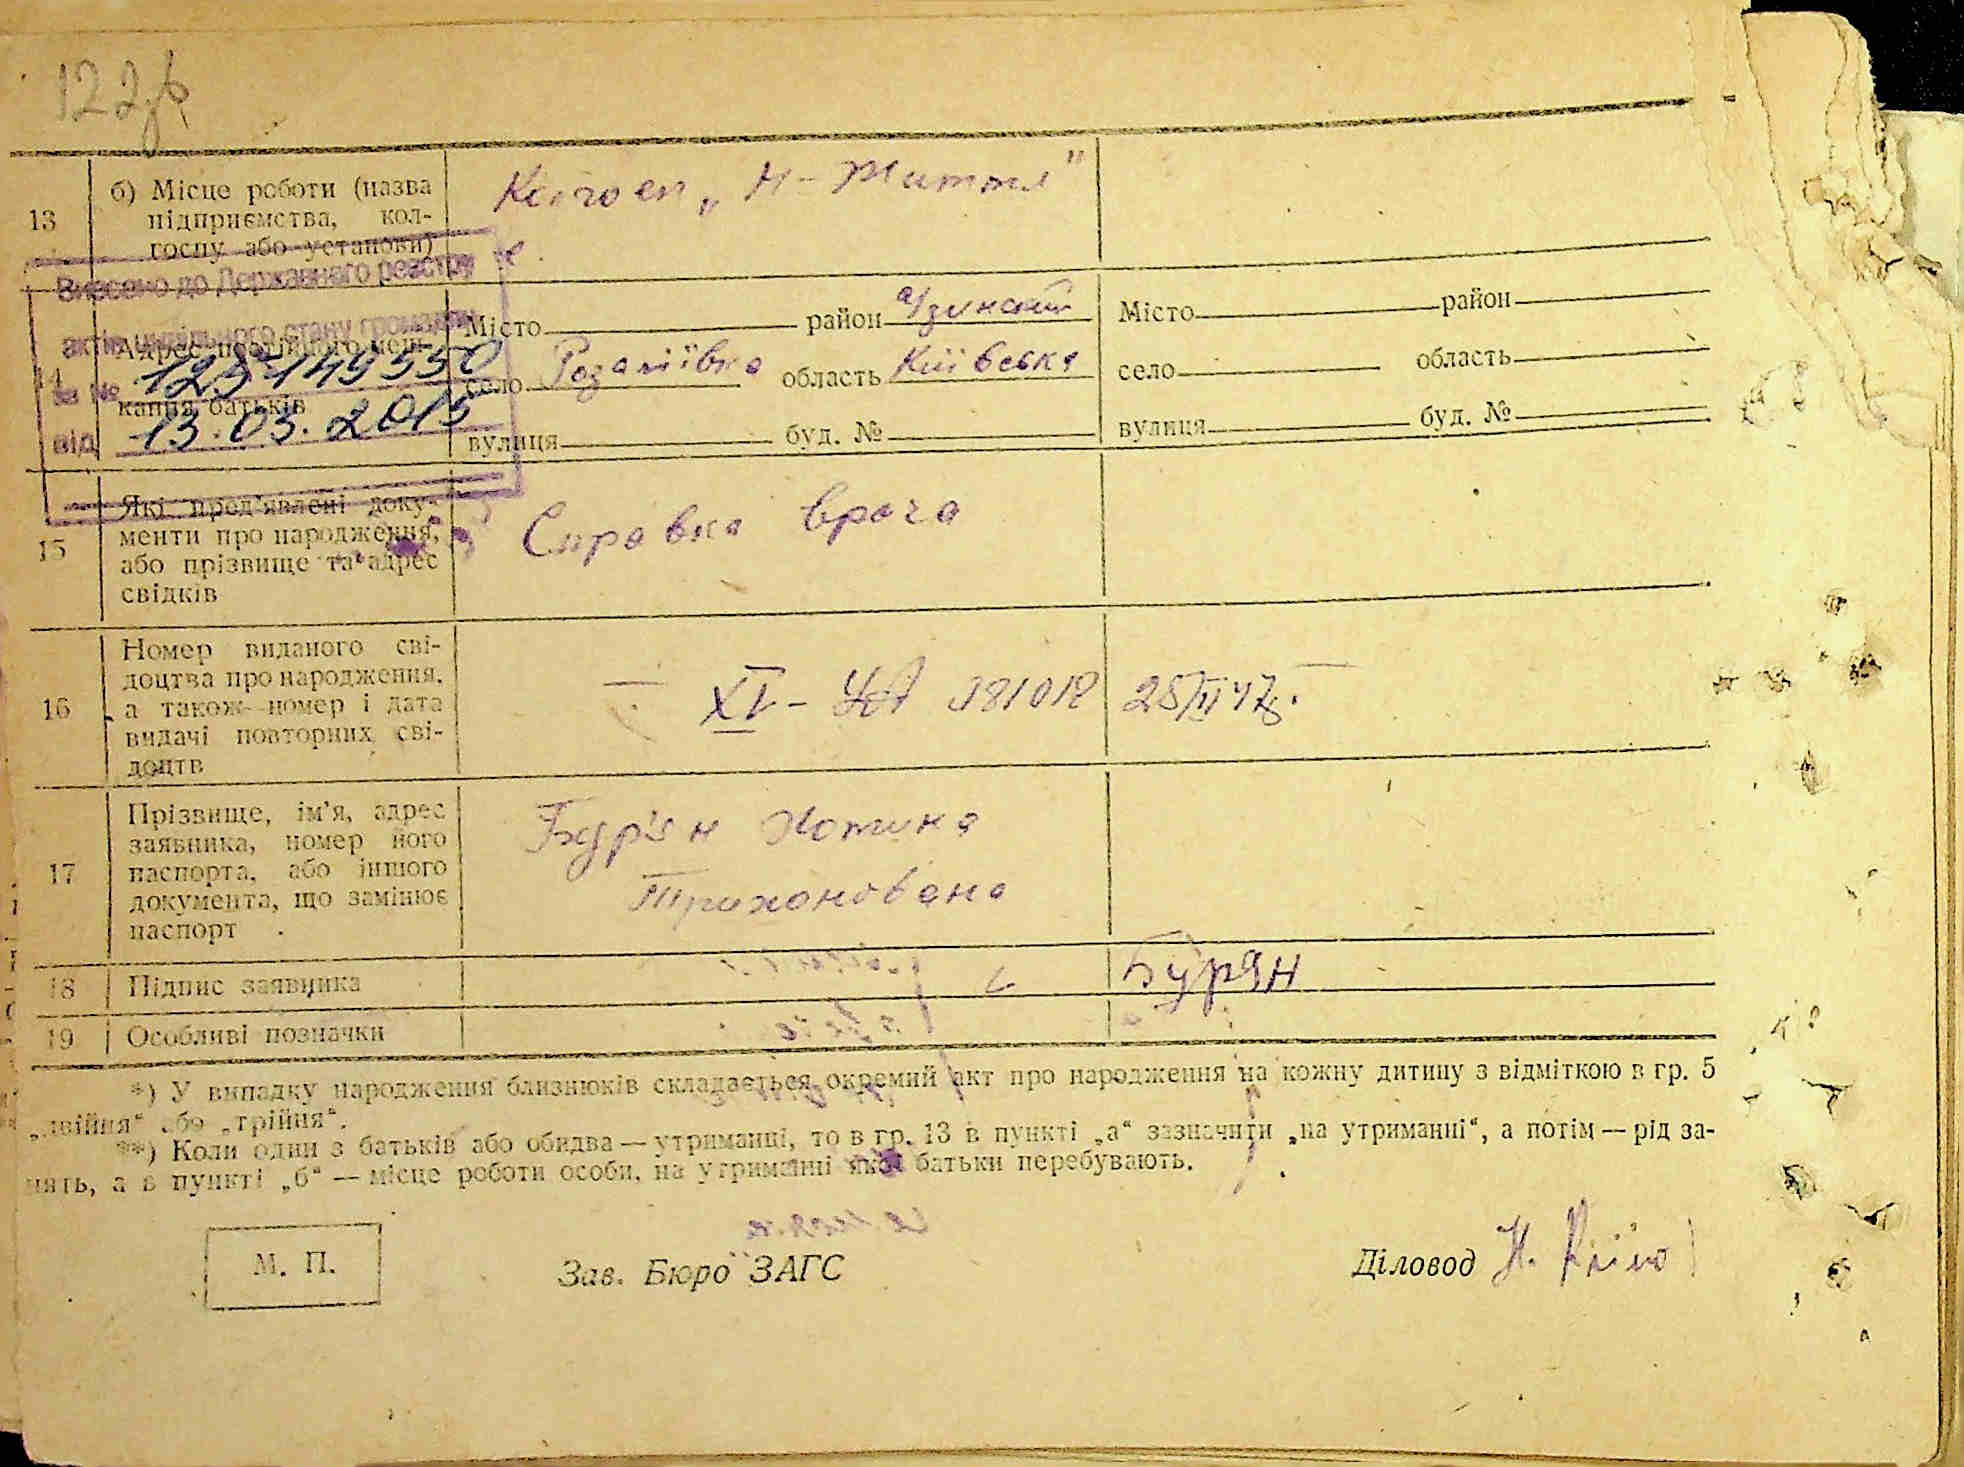 122
13
б) Місце роботи (назва
підприємства, кол-
госпу або установи)
Колгосп „Н-Життя"
Внесено до Державного реєстру
актів цивільного стану громадян
за №
від 13.03.2015
14
Адрес постійного меш-
кання батьків
Місто район Узинский
село Розаліївка область Київська
вулиця буд. №
Місто район
село область
вулиця буд. №
15
Які пред'явлені доку-
менти про народження,
або прізвище та адрес
свідків
Справка врача
16
Номер виданого сві-
доцтва про народження,
а також номер і дата
видачі повторних сві-
доцтв
25/II 47
17
Прізвище, ім'я, адрес
заявника, номер його
паспорта, або іншого
документа, що замінює
паспорт
Бур'ян
Трихонована
18 Підпис заявника Бурян
19 Особливі позначки
*) У випадку народження близнюків складається окремий акт про народження на кожну дитину з відміткою в гр. 5
„двійня“ або „трійня“.
**) Коли один з батьків або обидва — утриманці, то в гр. 13 в пункті „а“ зазначити „на утриманні“, а потім — рід за-
нять, а в пункті „б“ — місце роботи особи, на утриманні якої батьки перебувають.
М. П.
Зав. Бюро ЗАГС
Діловод